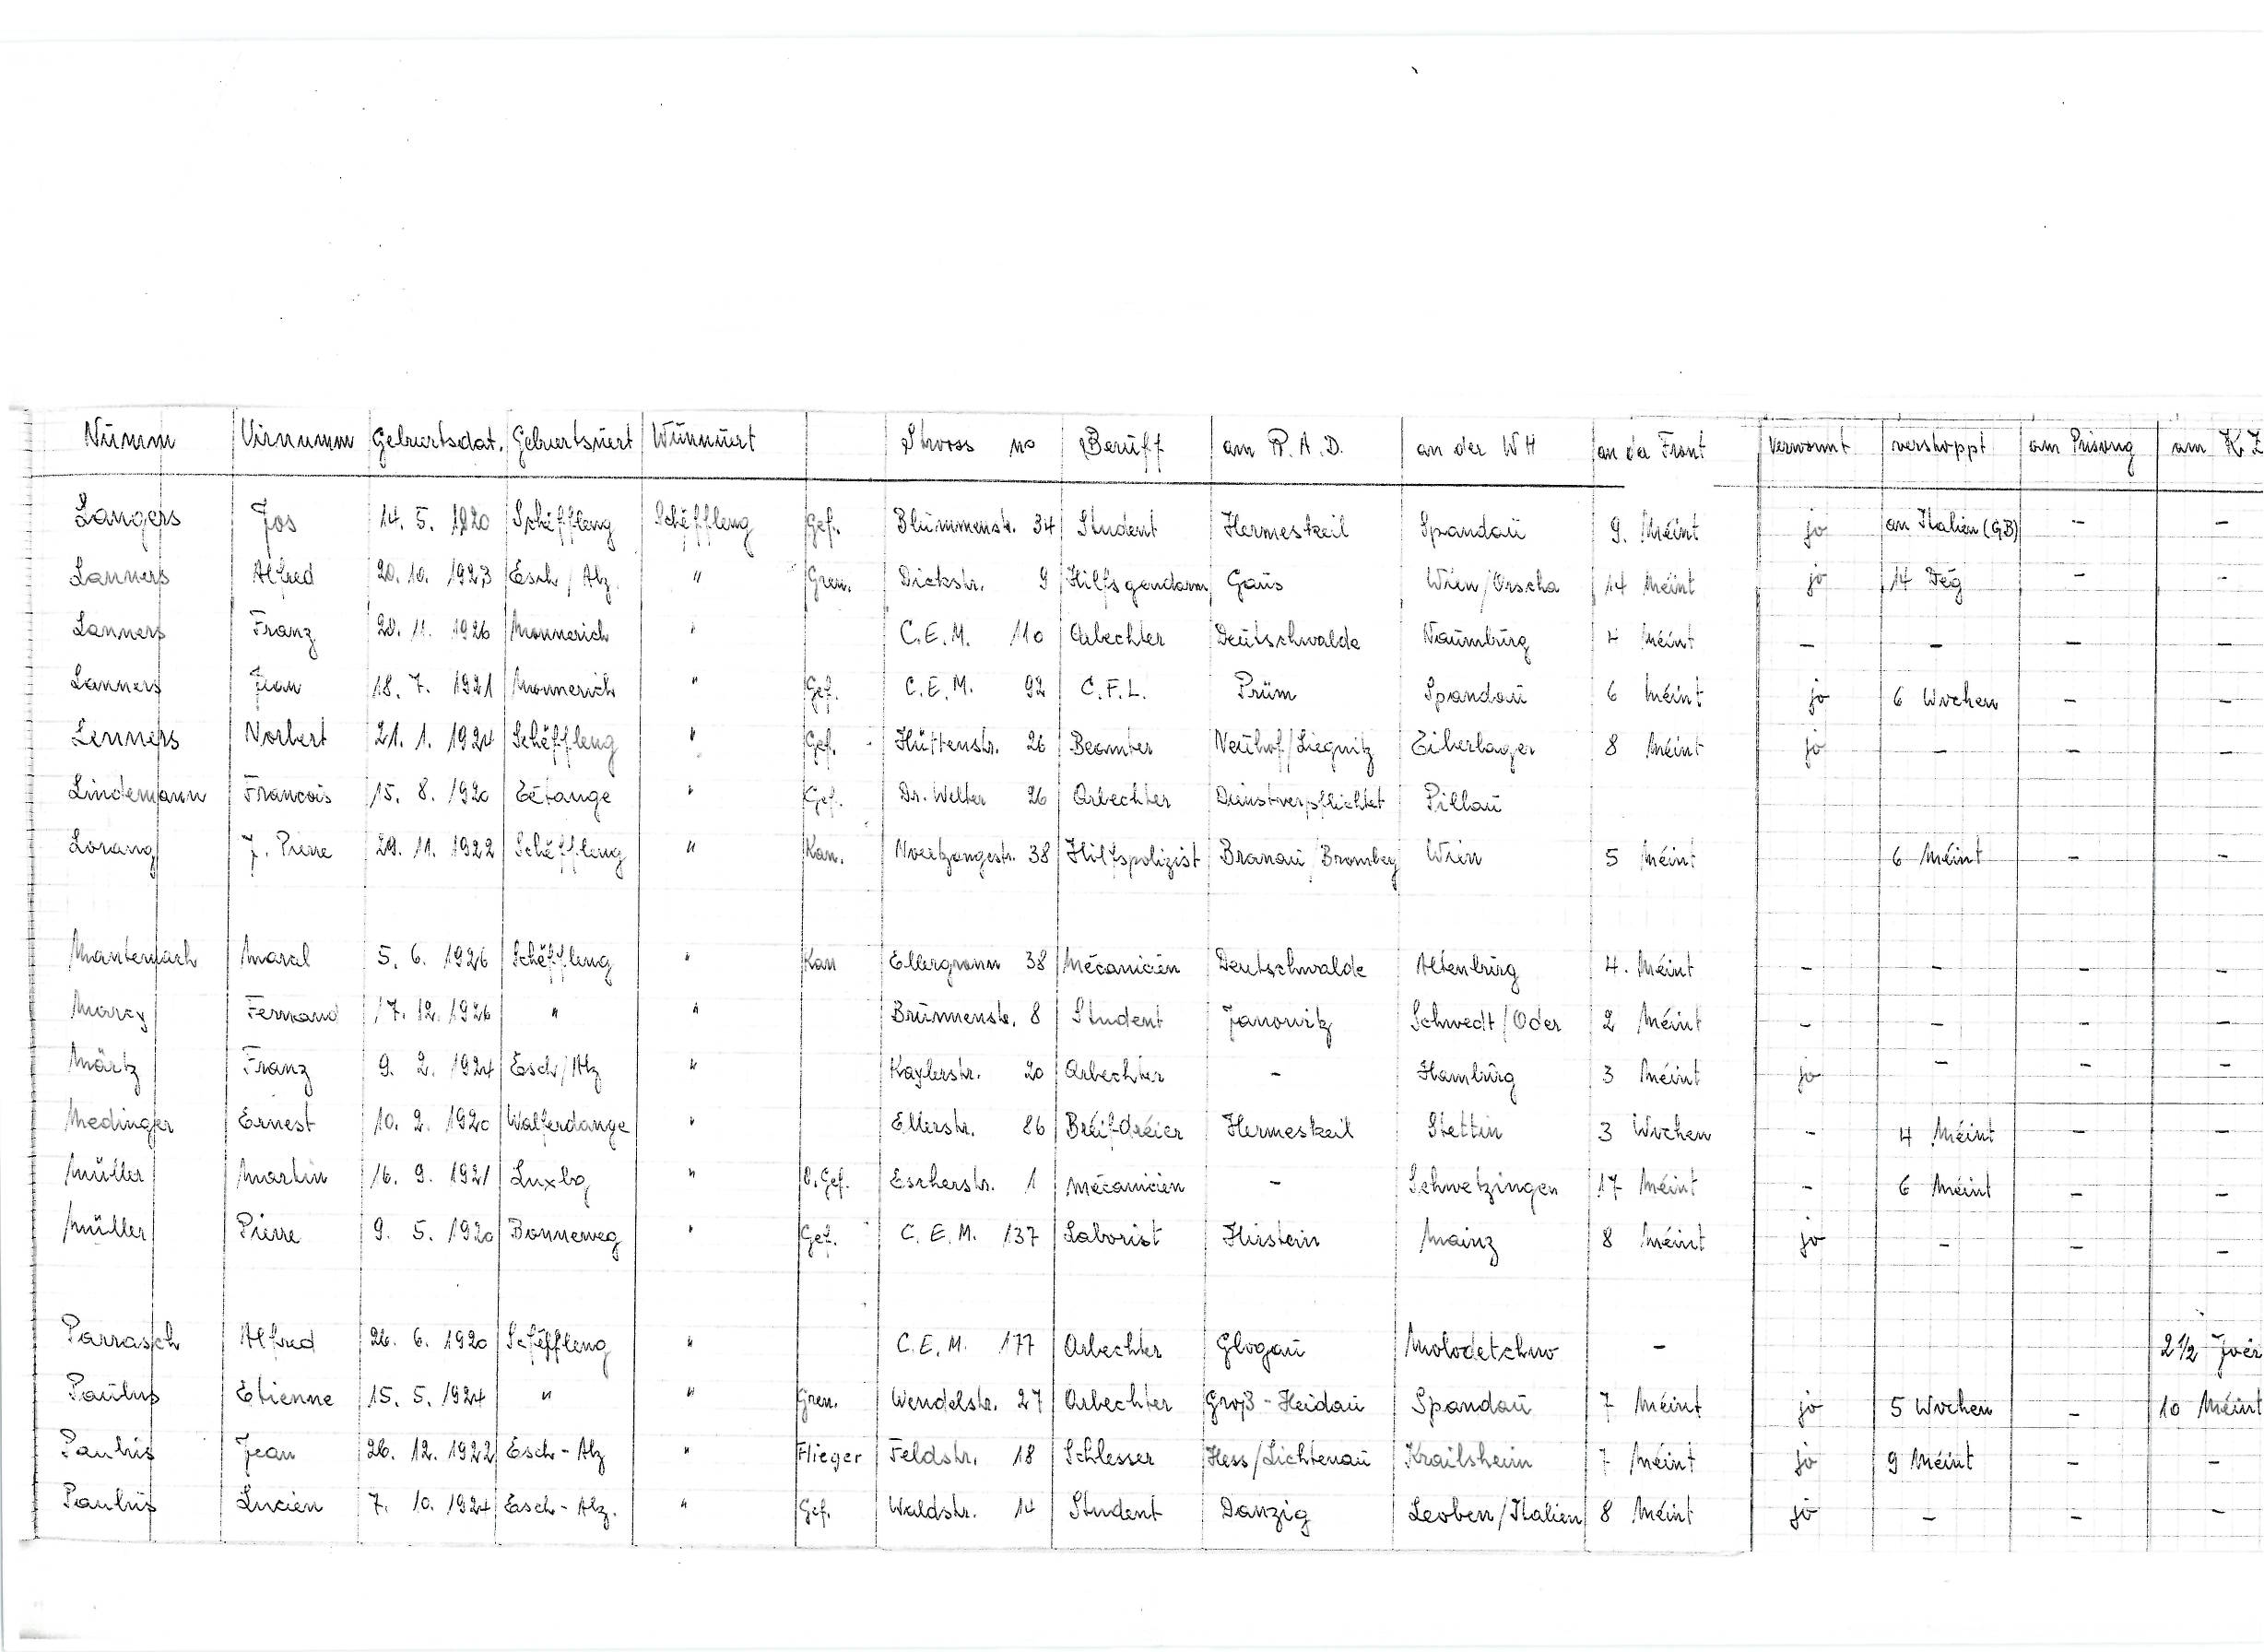 Numm Virnumm Geburtsdat. Geburtsuert Wunnuert Stross no Beruff am R.A.D. an der WH an der Front verwonnt verstoppt am Prisong am KZ
Langers Jos 14. 5. 1920 Schëffleng Schëffleng Gef. Blummenstr. 34 Student Hermeskeil Spandau 9. Méint jo an Italien (GB) - -
Lanners Alfred 20. 10. 1923 Esch/Alz. " Gren. Dickstr. 9 Hilfsgendarm Gaus Wien/Orscha 14 Méint jo 14 Deg - -
Lanners Franz 20. 11. 1926 Monnerich " C.E.M. 110 Arbechter Deutschwalde Naumburg 4 Méint - - - -
Lanners Jean 18. 7. 1921 Monnerich " Gef. C.E.M. 92 C.F.L. Prüm Spandau 6 Méint jo 6 Wochen - -
Lenners Norbert 21. 1. 1924 Schëffleng " Gef. Hüttenstr. 26 Beamter Neuhof/Liegnitz Eiberlager 8 Méint jo - - -
Lindemann Francois 15. 8. 1920 Tétange " Gef. Dr. Welter 26 Arbechter Dienstverpflichtet Pillau
Lorang J. Pierre 29. 11. 1922 Schëffleng " Kan. Noertzangestr. 38 Hilfspolizist Branau/Bromberg Wien 5 Méint 6 Méint - -
Manternach Marcel 5. 6. 1926 Schëffleng " Kan Ellergronn 38 Mécanicien Deutschwalde Altenburg 4. Méint - - - -
Marcy Fernand 17. 12. 1926 " " Brunnenstr. 8 Student Janowitz Schwedt/Oder 2 Méint - - - -
Märtz Franz 9. 2. 1924 Esch/Alz " Kaylerstr. 20 Arbechter - Hamburg 3 Méint jo - - -
Medinger Ernest 10. 2. 1920 Walferdange " Ellerstr. 86 Bréifdréier Hermeskeil Stettin 3 Wochen - 4 Méint - -
Müller Martin 16. 9. 1921 Luxbg " O.Gef. Escherstr. 1 Mécanicien - Schwetzingen 17 Méint - 6 Méint - -
Müller Pierre 9. 5. 1920 Bonneweg " Gef. C.E.M. 137 Laborist Hirstein Mainz 8 Méint jo - - -
Parrasch Alfred 26. 6. 1920 Schëffleng " C.E.M. 177 Arbechter Glogau Molodetchno - 2 1/2 Joer
Paulus Etienne 15. 5. 1924 " " Gren. Wendelstr. 27 Arbechter Groß-Heidau Spandau 7 Méint jo 5 Wochen - 10 Méint
Paulus Jean 26. 12. 1922 Esch-Alz " Flieger Feldstr. 18 Schlesser Hess/Lichtenau Krailsheim 7 Méint jo 9 Méint - -
Paulus Lucien 7. 10. 1924 Esch-Alz. " Gef. Waldstr. 14 Student Danzig Leoben/Italien 8 Méint jo - - -